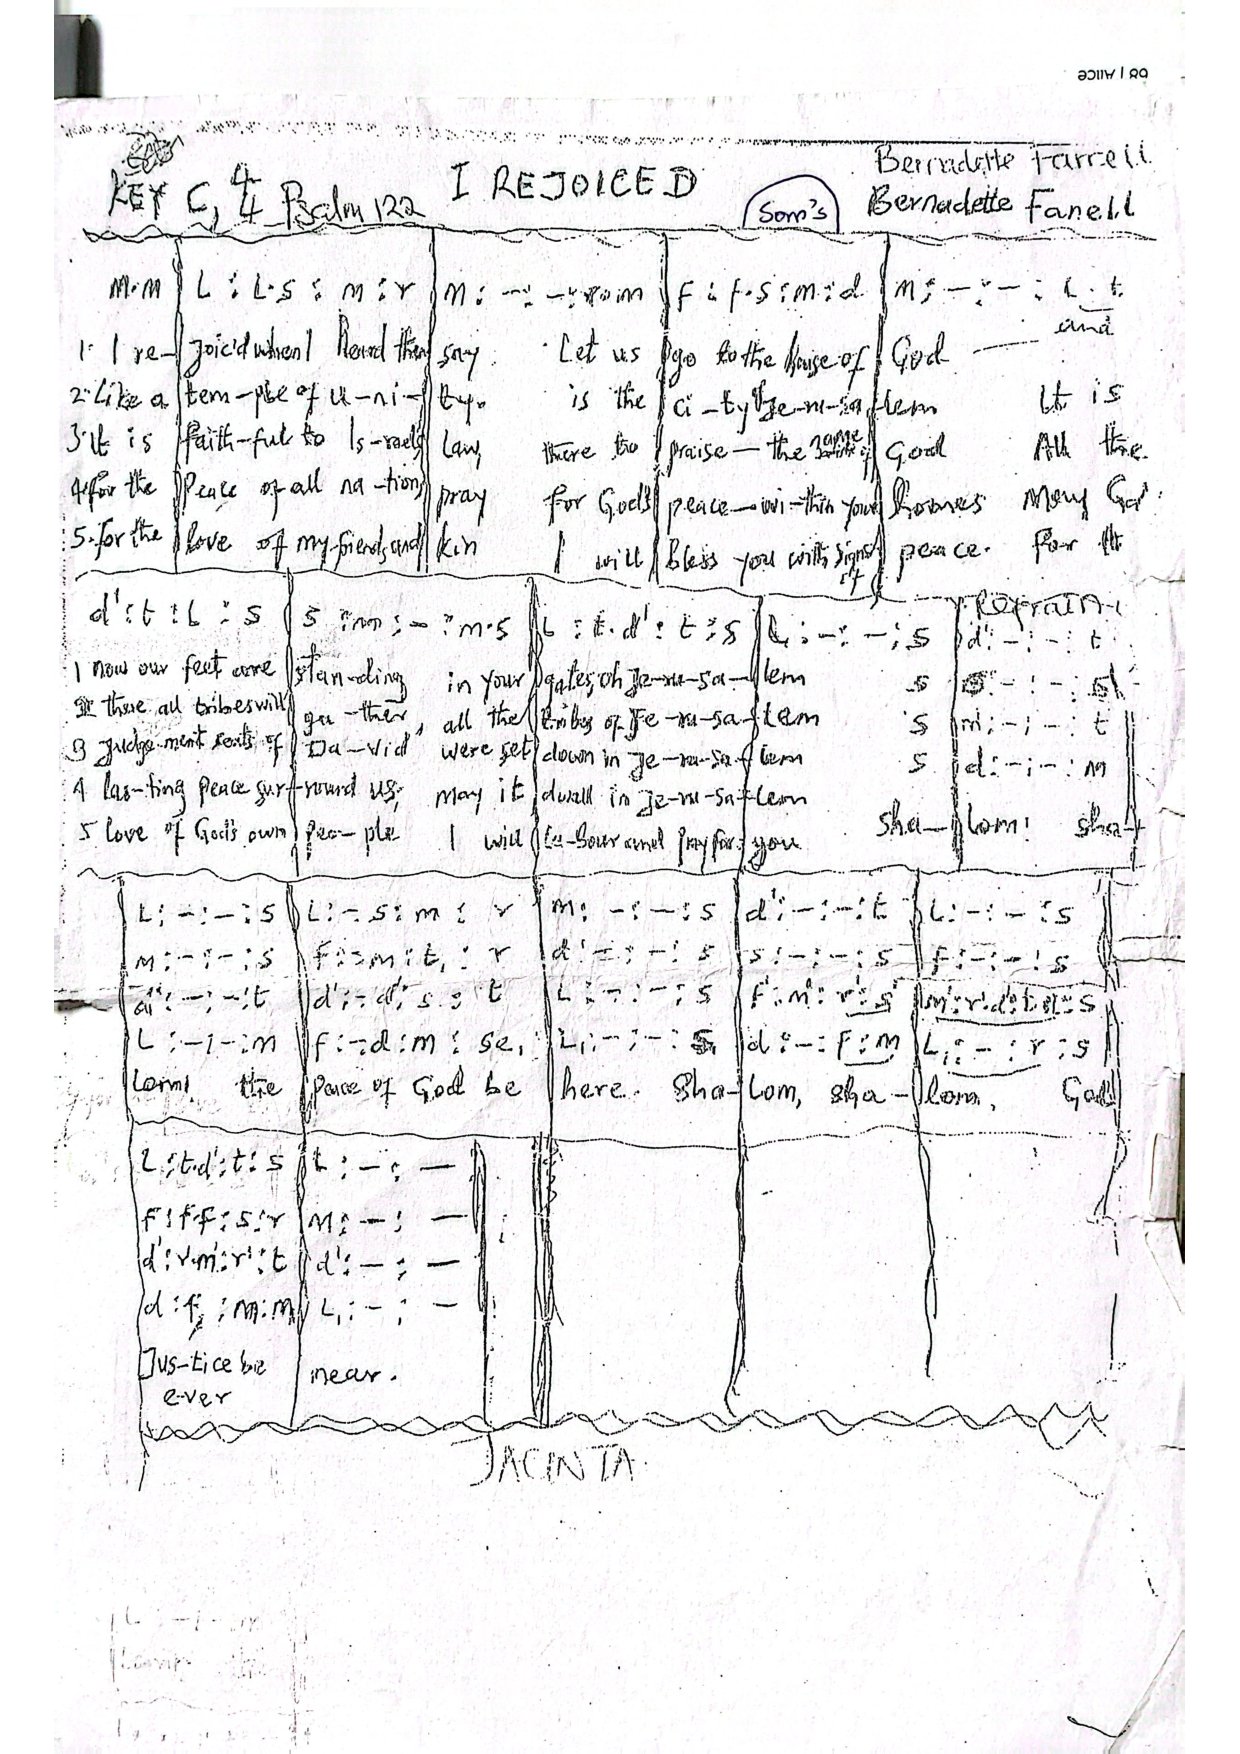 68 | Alice
Bernadette Farrell
KEY C, 4/4 Psalm 122 I REJOICED Som's Bernadette Fanell
m.m | L : L.s : m : r | m : - : - : m | f : f.s : m : d | m : - : - : L . t
and
1. I re- | joic'd when I heard them | say. Let us | go to the house of | God
2. Like a | tem-ple of u-ni- | ty. is the | ci-ty Je-ru-sa- | lem It is
3. It is | faith-ful to Is-raels | law, there to | praise - the name of | God All the
4. for the | Peace of all na-tions | pray for God's | peace - wi-thin your | homes May God
5. for the | love of my friends and | kin I will | bless you with signs of | peace. For the
Refrain
d' : t : L : s | s : m : - : m.s | L : t.d' : t : s | L : - : - : s | d' : - : - : t
1 now our feet are | stan-ding in your | gates, oh Je-ru-sa- | lem s | s : - : - : s
there all tribes will | ga-ther, all the | tribes of Je-ru-sa- | lem s | m : - : - : t
3 judge-ment seats of | Da-vid were set | down in Je-ru-sa- | lem s | d : - : - : m
4 las-ting peace sur- | round us; may it | dwell in Je-ru-sa- | lem
5 love of God's own | peo-ple I will | la-bour and pray for | you sha- | lom! sha-
L : - : - : s | L : - . s : m : r | m : - : - : s | d' : - : - : t | L : - : - : s
m : - : - : s | f : - m : t, : r | d : - : - : s | s : - : - : s | f : - : - : s
d' : - : - : t | d' : - d' : s : t | L : - : - : s | f' : m' : r' : s' | m' : r'.d' : t : s
L : - : - : m | f : - d : m : se, | L, : - : - : s, | d : - : f : m | L, : - : r : s
lom! the | Peace of God be | here. Sha- | lom, sha- | lom, God's
L : t.d' : t : s | L : - : -
f : f.f : s : r | m : - : -
d' : r'.m' : r' : t | d' : - : -
d : f, : m : m | L, : - : -
Jus-tice be | near.
ever
JACINTA